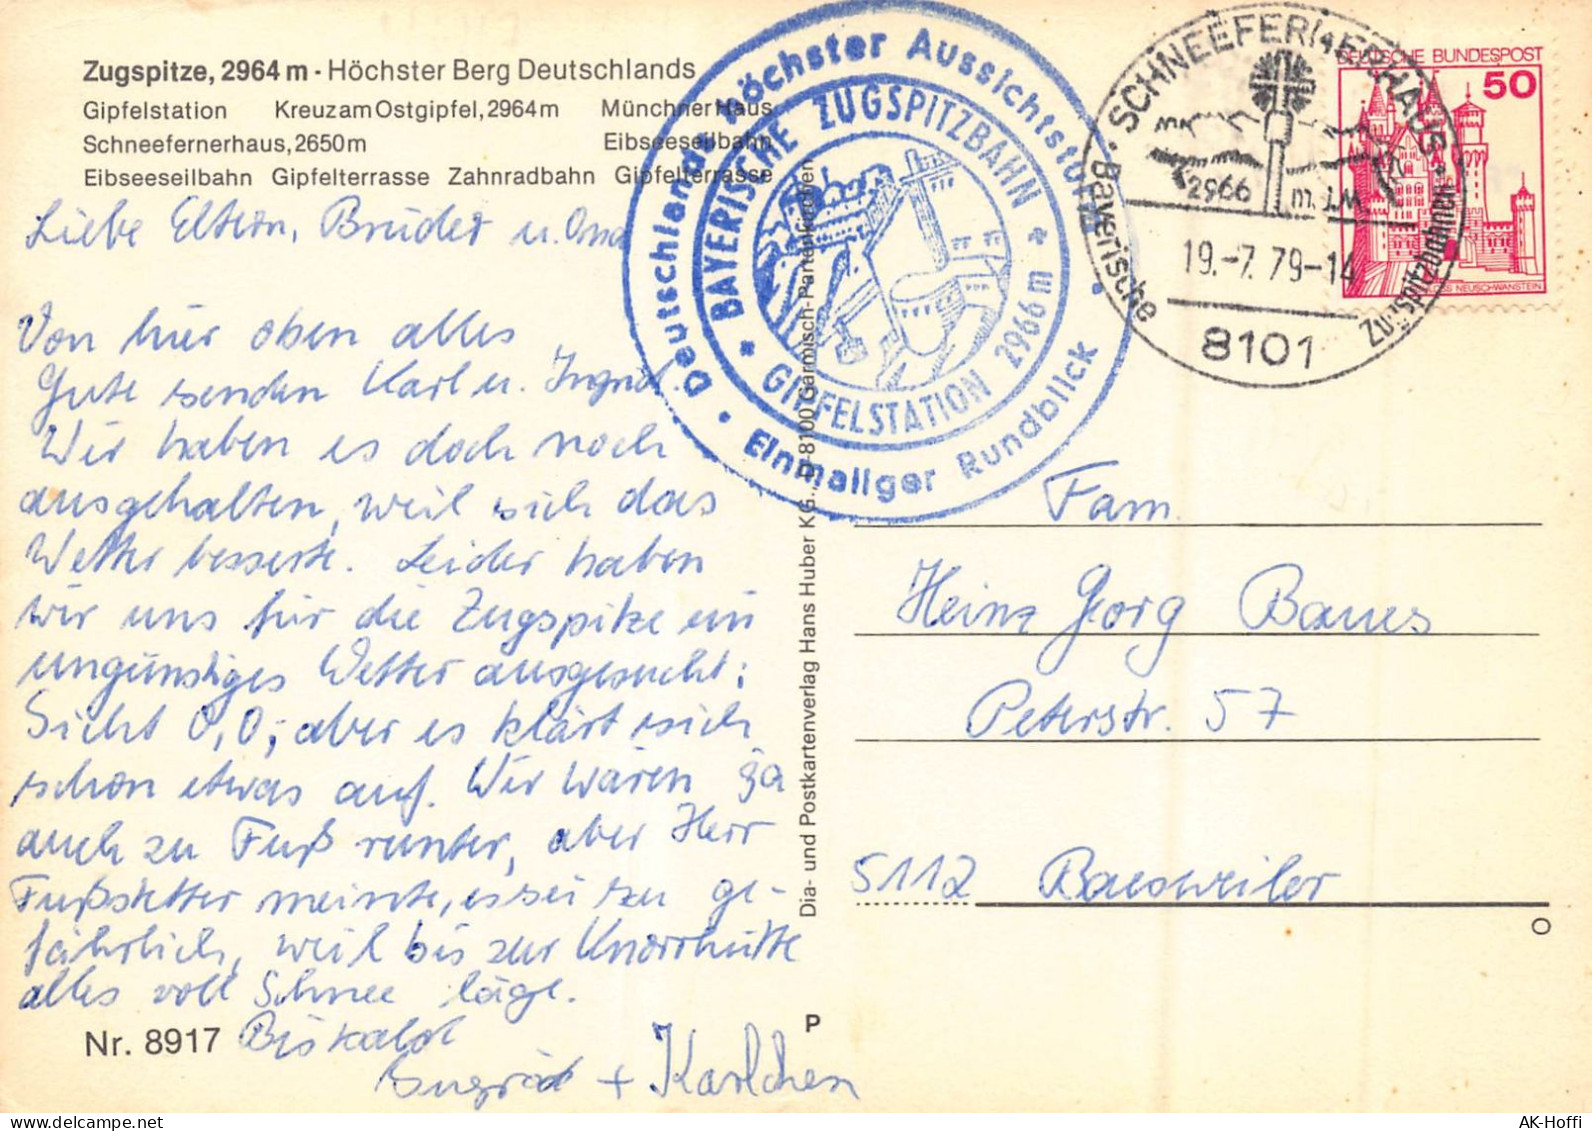 Zugspitze, 2964 m - Höchster Berg Deutschlands
Gipfelstation Kreuz am Ostgipfel, 2964 m Münchner Haus
Schneefernerhaus, 2650 m Eibseeseilbahn
Eibseeseilbahn Gipfelterrasse Zahnradbahn Gipfelterrasse
Liebe Eltern, Bruder u. Oma
Von hier oben alles
Gute senden Karl u. Ingrid.
Wir haben es doch noch
ausgehalten, weil sich das
Wetter besserte. Leider haben
wir uns für die Zugspitze ein
ungünstiges Wetter ausgesucht:
Sicht 0,0; aber es klärt sich
schon etwas auf. Wir wären ja
auch zu Fuß runter, aber Herr
Fußstetter meinte, es sei zu ge-
fährlich, weil bis zur Knorrhütte
alles voll Schnee läge.
Bis bald
Ingrid + Karlchen
Nr. 8917
P
Dia- und Postkartenverlag Hans Huber KG., D-8100 Garmisch-Partenkirchen
Deutschlands Höchster Aussichtsturm
• Einmaliger Rundblick •
* BAYERISCHE ZUGSPITZBAHN *
GIPFELSTATION 2966 m
SCHNEEFERNERHAUS
• Bayerische Zugspitzbahnen •
2966 m.ü.M.
19.-7.79-14
8101
DEUTSCHE BUNDESPOST
50
SCHLOSS NEUSCHWANSTEIN
Fam.
Heinz Georg Baues
Peterstr. 57
5112 Baesweiler
O
AK-Hoffi